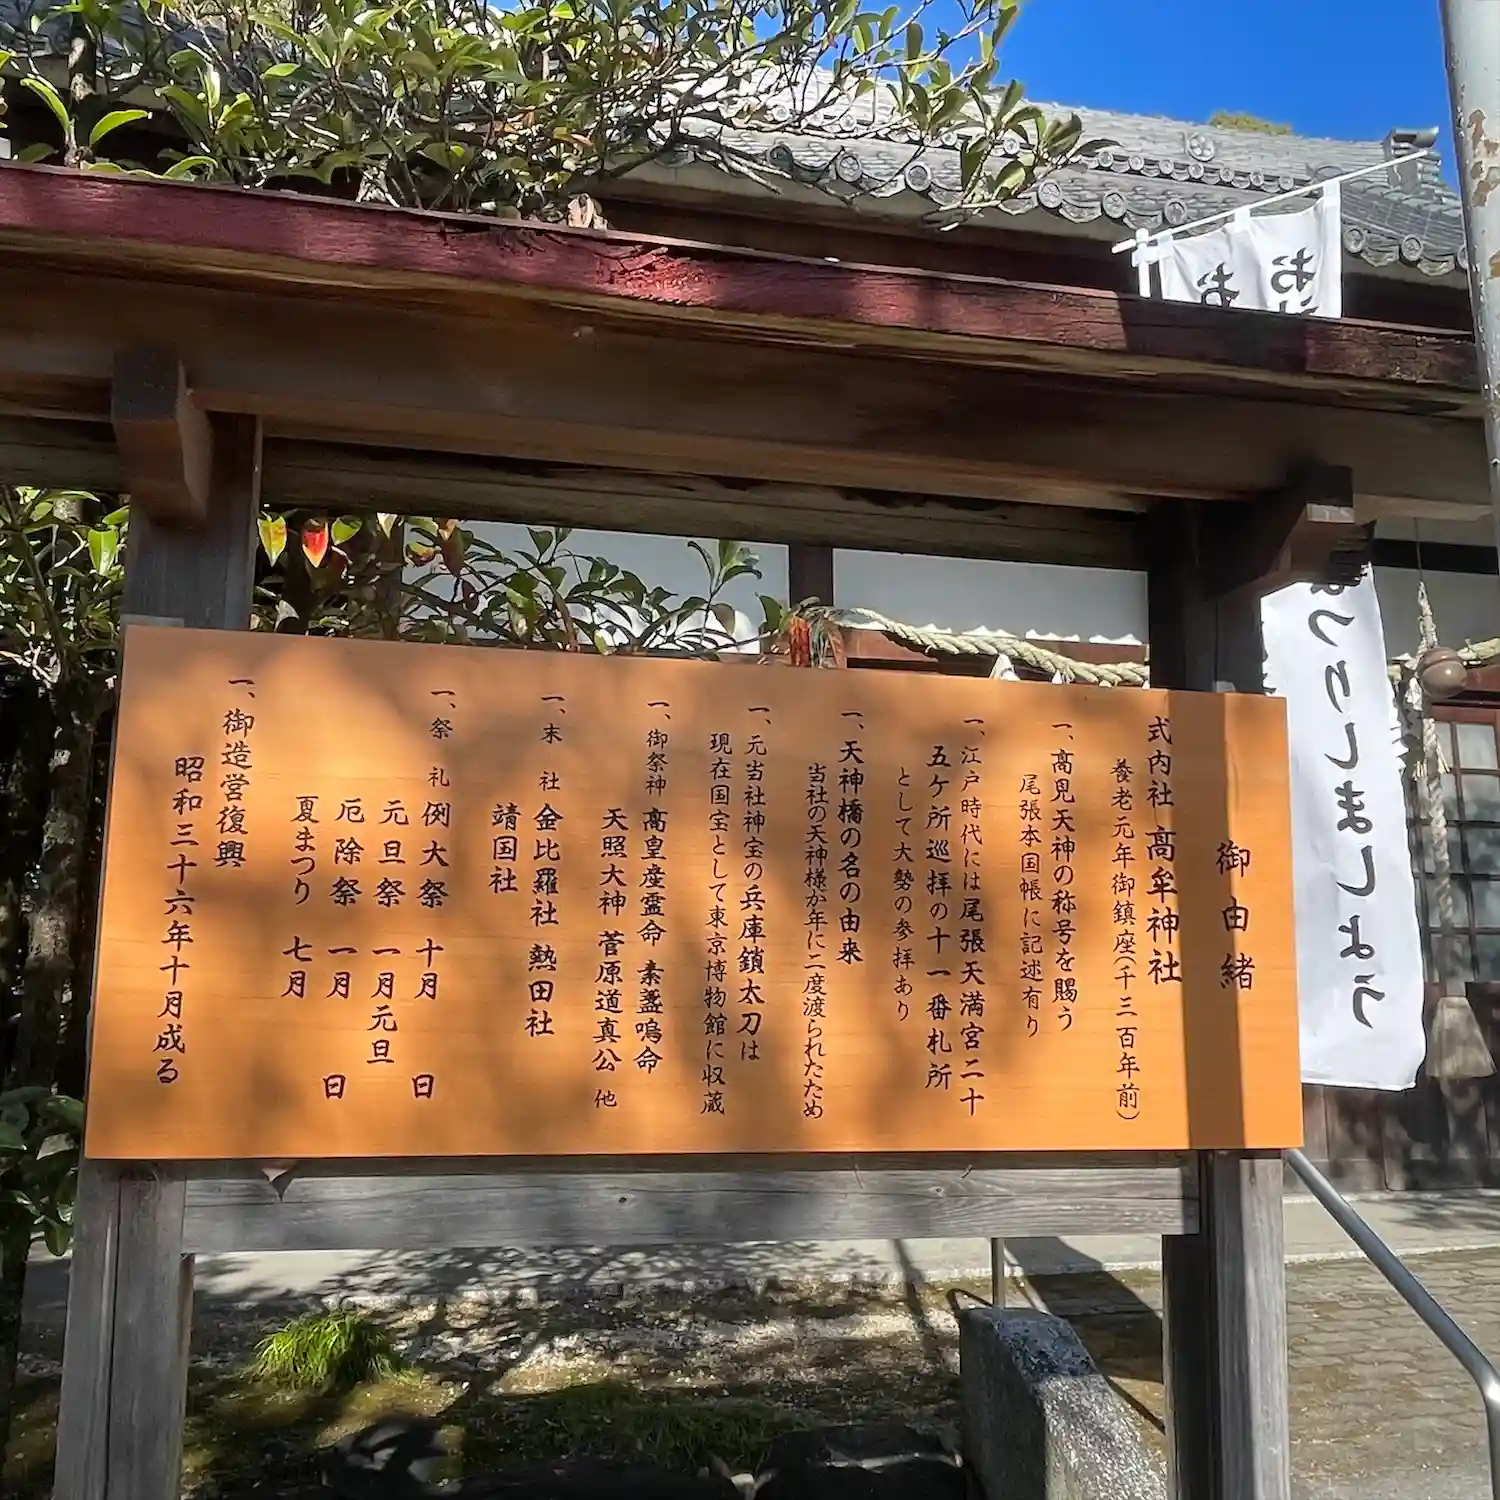 御由緒
式内社 高牟神社
養老元年御鎮座(千三百年前)
一、高見天神の称号を賜う
尾張本国帳に記述有り
一、江戸時代には尾張天満宮二十
五ケ所巡拝の十一番札所
として大勢の参拝あり
一、天神橋の名の由来
当社の天神様が年に二度渡られたため
一、元当社神宝の兵庫鎖太刀は
現在国宝として東京博物館に収蔵
一、御祭神 高皇産霊命 素盞嗚命
天照大神 菅原道真公 他
一、末 社 金比羅社 熱田社
靖国社
一、祭 礼 例大祭 十月 日
元旦祭 一月元旦
厄除祭 一月 日
夏まつり 七月
一、御造営復興
昭和三十六年十月成る
お
お
つりしましょう